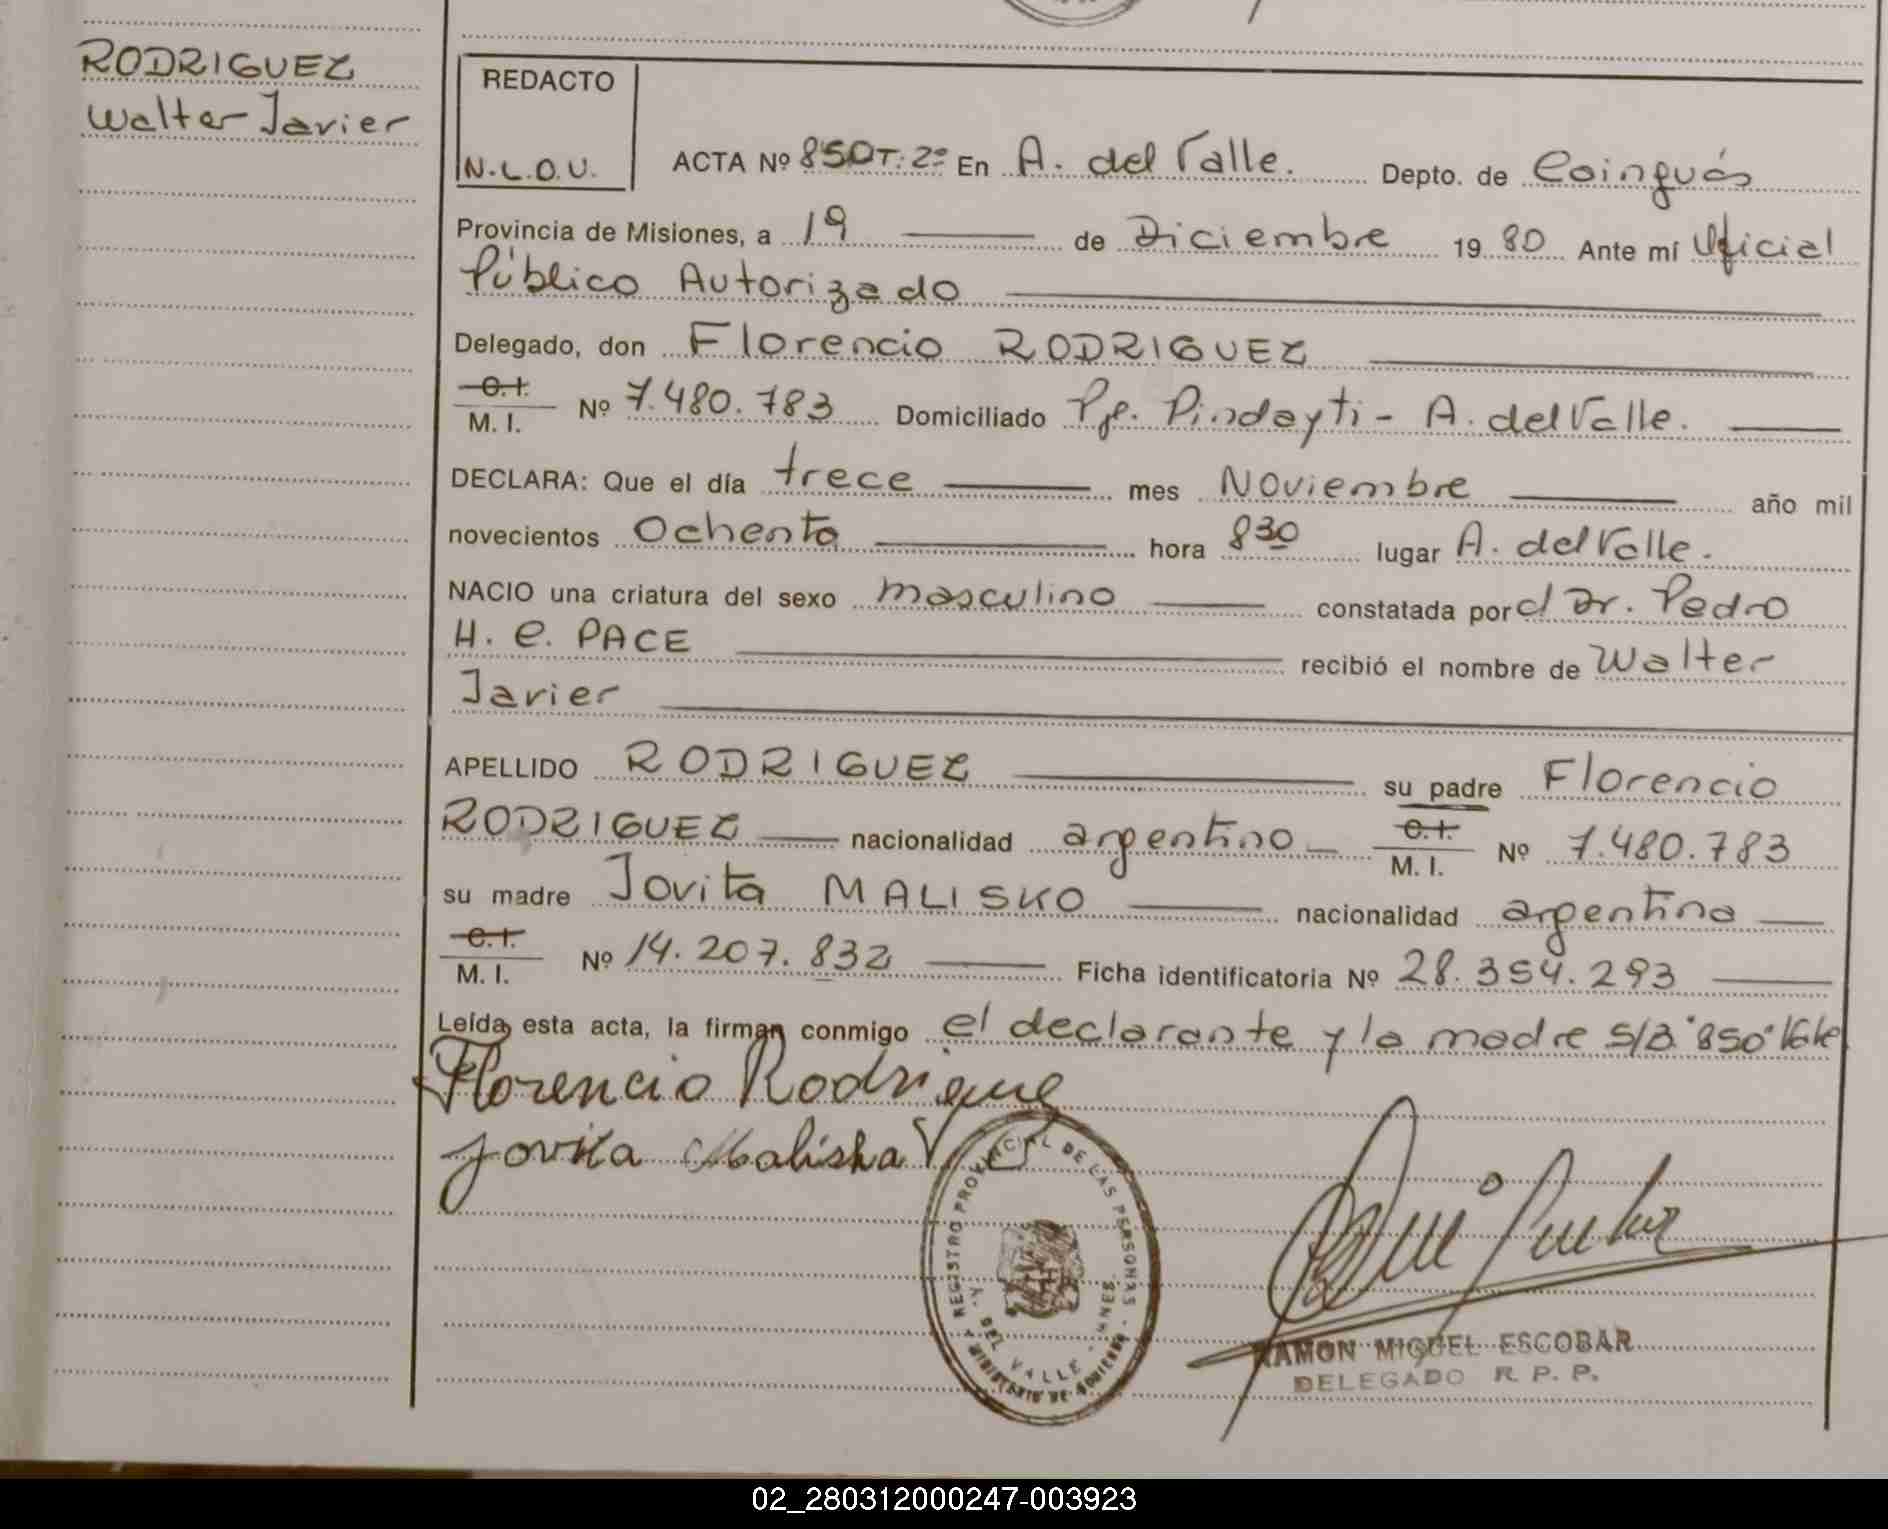 RODRIGUEZ
Walter Javier
REDACTO
N.L.O.U.
ACTA Nº 850 T: 2º En A. del Valle. Depto. de Cainguás
Provincia de Misiones, a 19 de Diciembre 19 80 Ante mí Oficial
Público Autorizado
Delegado, don Florencio RODRIGUEZ
C.I.
M. I. Nº 7.480.783 Domiciliado Pje. Pindayti - A. del Valle.
DECLARA: Que el día trece mes Noviembre año mil
novecientos Ochenta hora 830 lugar A. del Valle.
NACIO una criatura del sexo masculino constatada por d Dr. Pedro
H. C. PACE recibió el nombre de Walter
Javier
APELLIDO RODRIGUEZ su padre Florencio
RODRIGUEZ nacionalidad argentino C.I. M. I. Nº 7.480.783
su madre Jovita MALISKO nacionalidad argentina
C.I.
M. I. Nº 14.207.832 Ficha identificatoria Nº 28.354.293
Leída esta acta, la firman conmigo el declarante y la madre S/B "850" Vale
Florencio Rodrigue
Jovita Maliska
REGISTRO PROVINCIAL DE LAS PERSONAS
A. DEL VALLE - MNES.
MINISTERIO DE GOBIERNO
RAMON MIGUEL ESCOBAR
DELEGADO R. P. P.
02_280312000247-003923